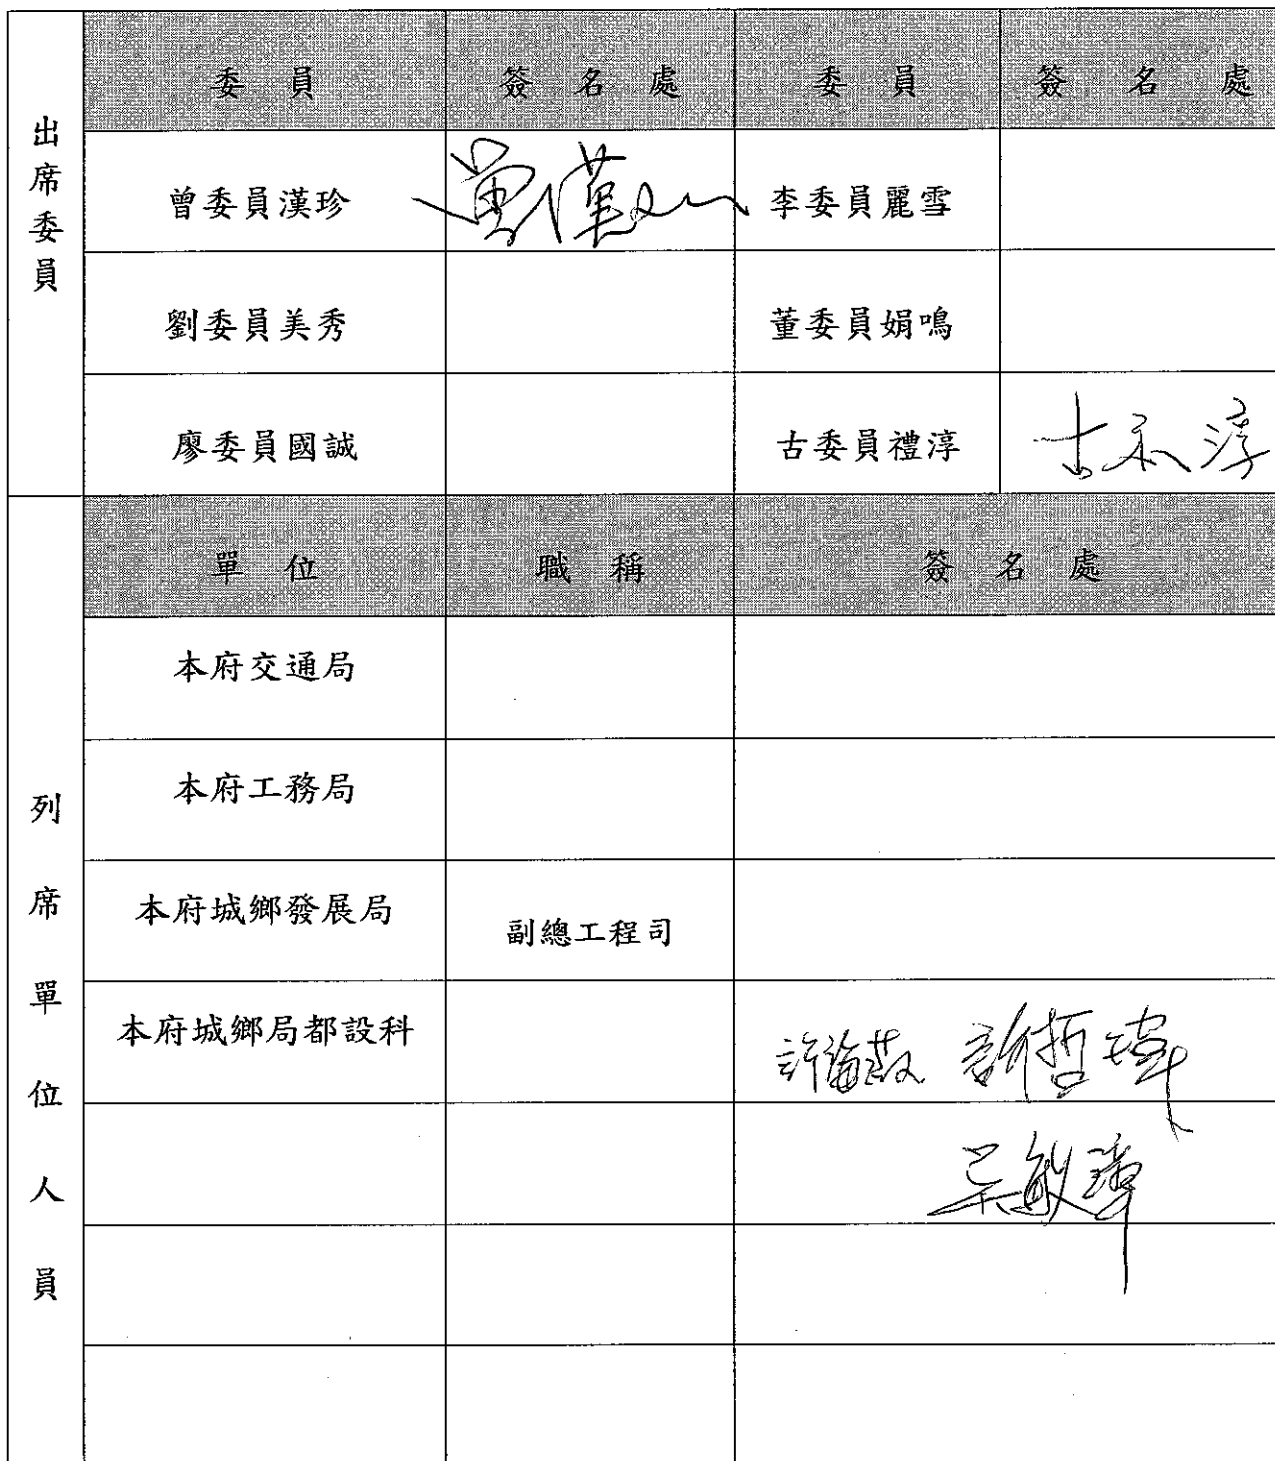 出席委員
委員 簽名處 委員 簽名處
曾委員漢珍 曾漢珍 李委員麗雪
劉委員美秀 董委員娟鳴
廖委員國誠 古委員禮淳 古礼淳
列席單位人員
單位 職稱 簽名處
本府交通局
本府工務局
本府城鄉發展局 副總工程司
本府城鄉局都設科 許哲瑋
吳敏瑋